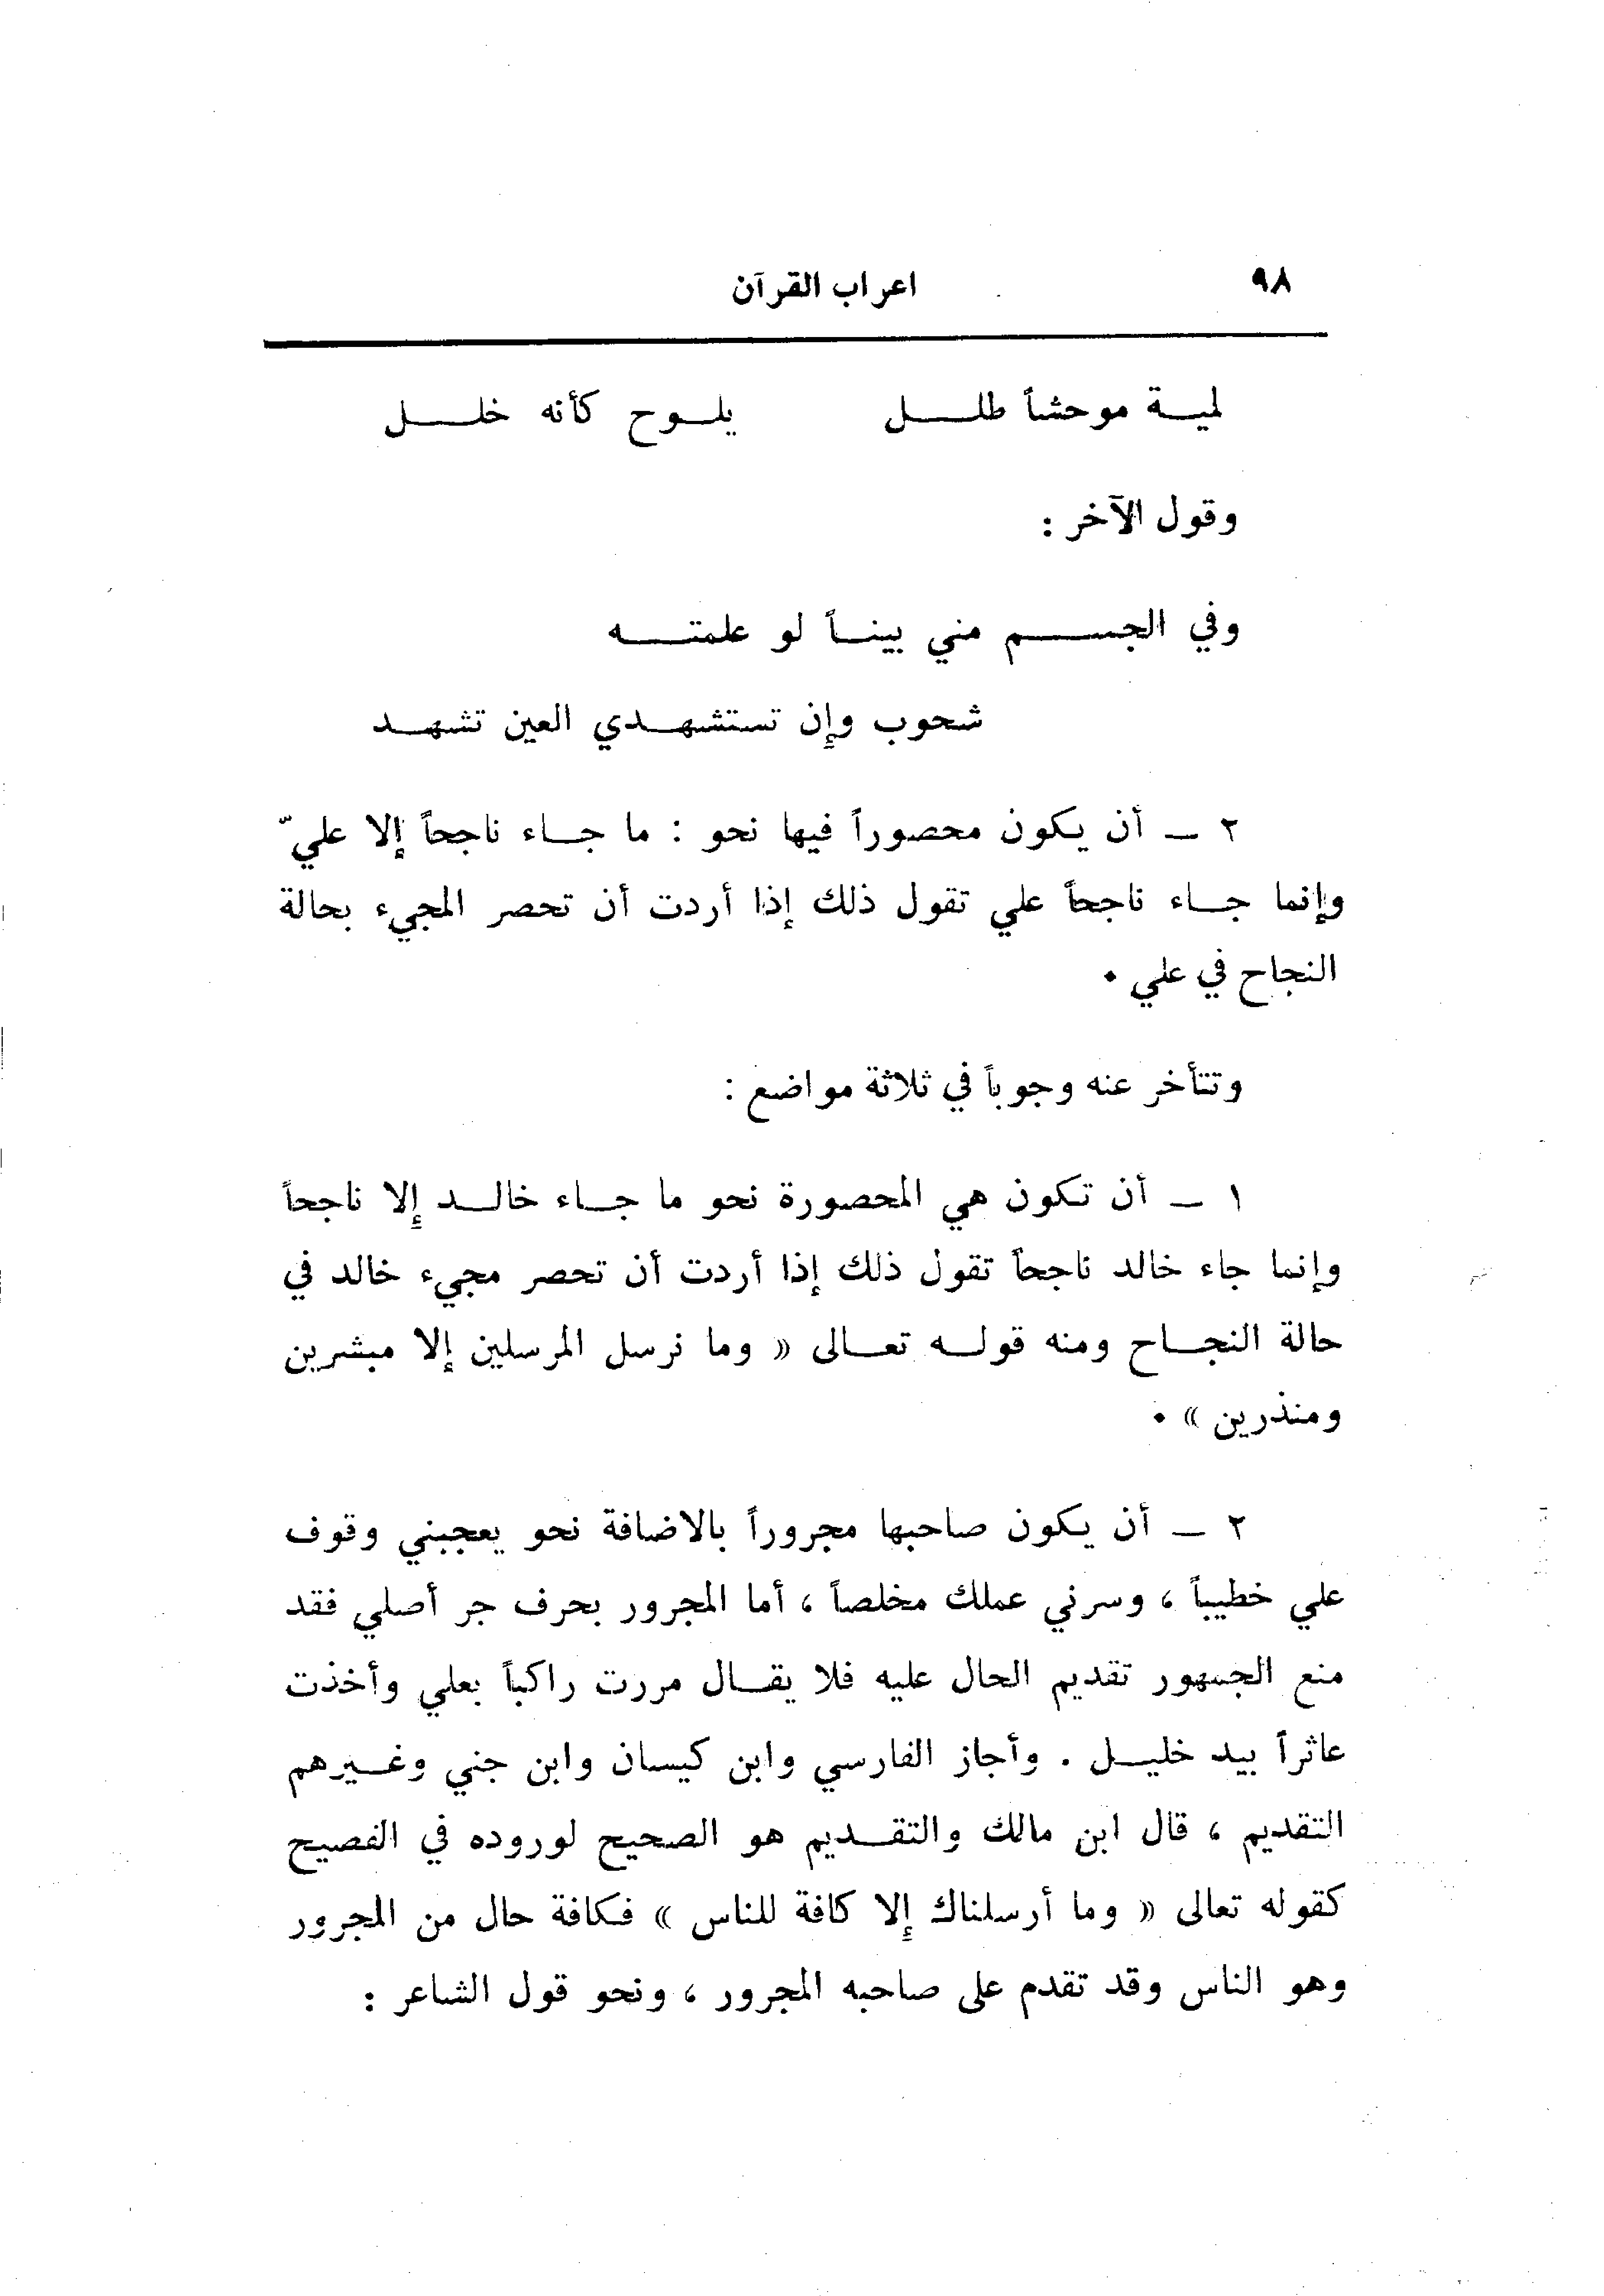 ٩٨ اعراب القرآن
لمية موحشاً طلل يلوح كأنه خلل
وقول الآخر :
وفي الجسم مني بيناً لو علمته
شحوب وإن تستشهدي العين تشهد
٢ ـ أن يكون محصوراً فيها نحو : ما جاء ناجحاً إلا عليّ
وإنما جاء ناجحاً علي تقول ذلك إذا أردت أن تحصر المجيء بحالة
النجاح في علي .
وتتأخر عنه وجوباً في ثلاثة مواضع :
١ ـ أن تكون هي المحصورة نحو ما جاء خالد إلا ناجحاً
وإنما جاء خالد ناجحاً تقول ذلك إذا أردت أن تحصر مجيء خالد في
حالة النجاح ومنه قوله تعالى « وما نرسل المرسلين إلا مبشرين
ومنذرين » .
٢ ـ أن يكون صاحبها مجروراً بالاضافة نحو يعجبني وقوف
علي خطيباً ، وسرني عملك مخلصاً ، أما المجرور بحرف جر أصلي فقد
منع الجمهور تقديم الحال عليه فلا يقال مررت راكباً بعلي وأخذت
عاثراً بيد خليل . وأجاز الفارسي وابن كيسان وابن جني وغيرهم
التقديم ، قال ابن مالك والتقديم هو الصحيح لوروده في الفصيح
كقوله تعالى « وما أرسلناك إلا كافة للناس » فكافة حال من المجرور
وهو الناس وقد تقدم على صاحبه المجرور ، ونحو قول الشاعر :